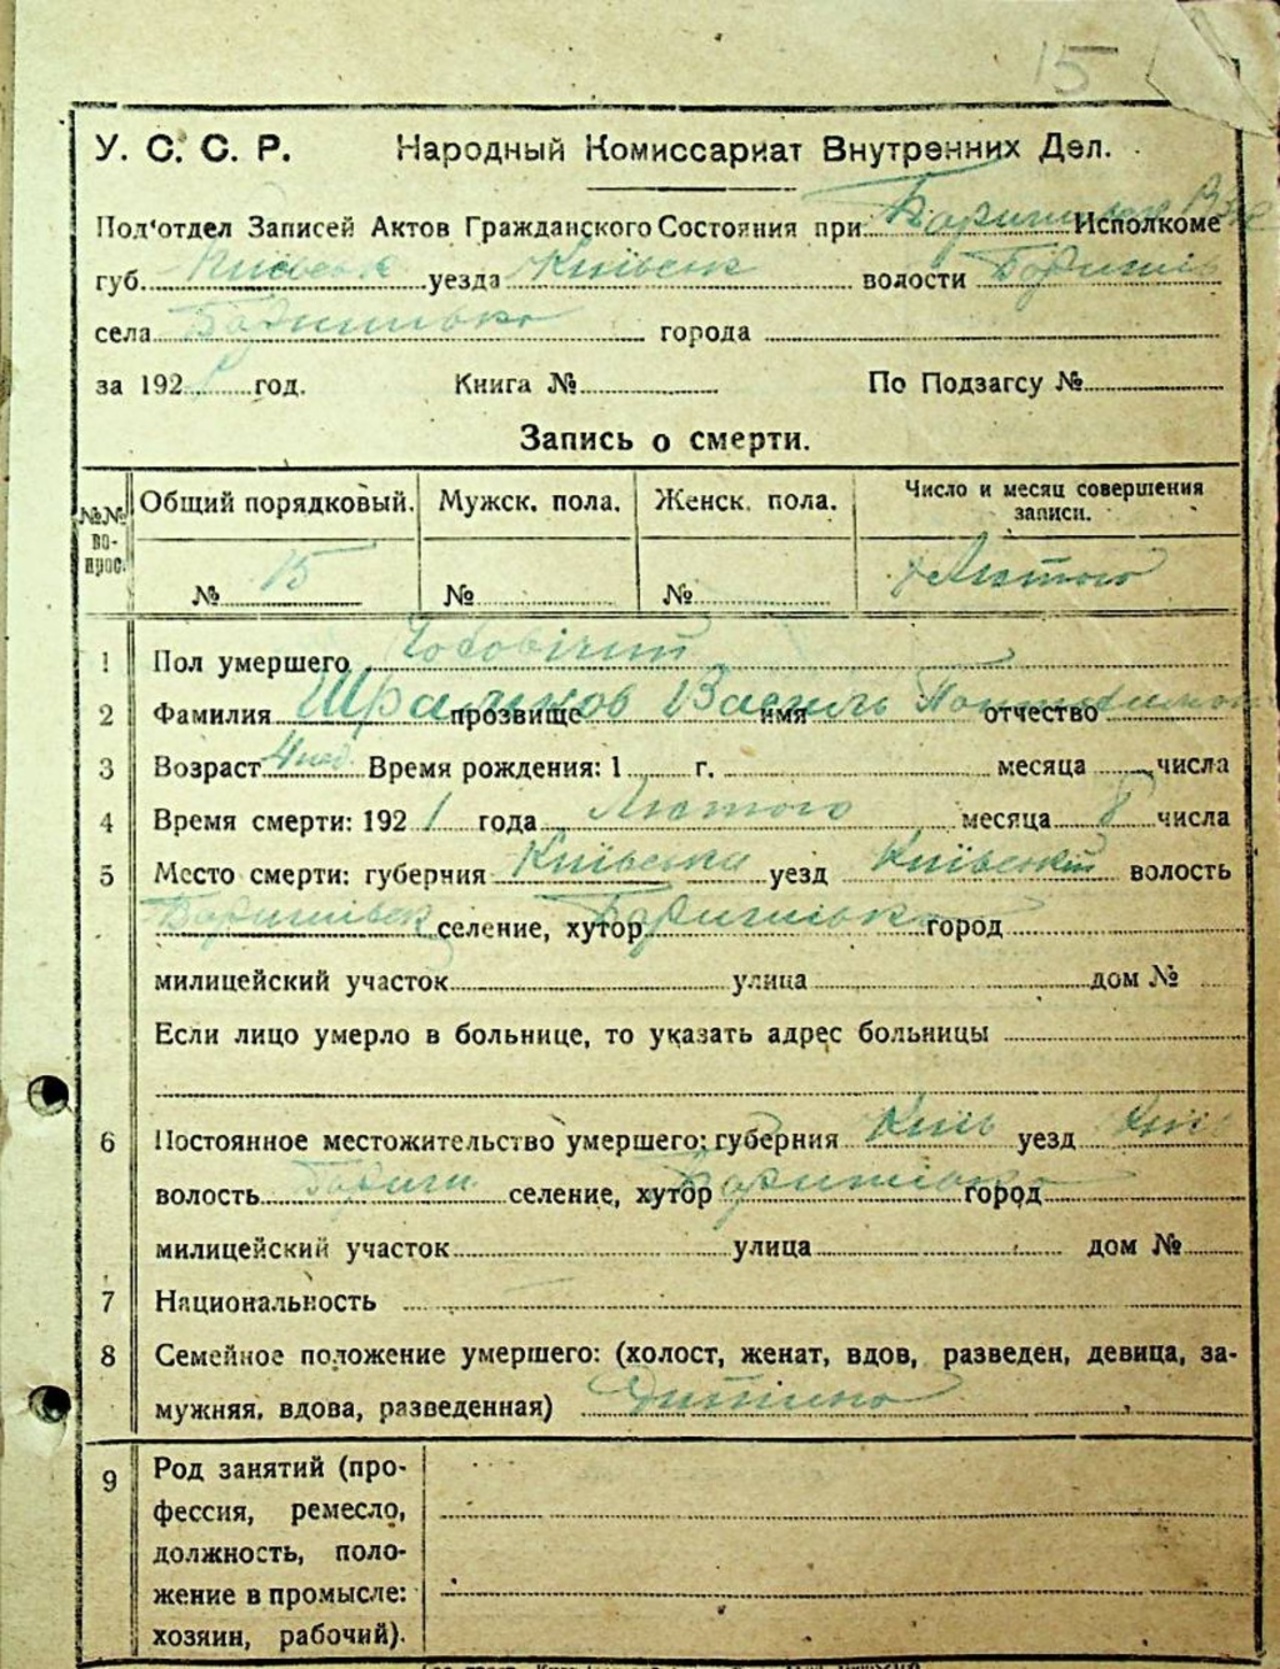 15
У. С. С. Р. Народный Комиссариат Внутренних Дел.
Под'отдел Записей Актов Гражданского Состояния при Исполкоме
губ. уезда Київськ волости Баришів
села Баришівка города
за 192 год. Книга № По Подзагсу №
Запись о смерти.
№№ вопрос. Общий порядковый. Мужск. пола. Женск. пола. Число и месяц совершения записи.
№ 15 № № 8 Лютого
1 Пол умершего Чоловічий
2 Фамилия прозвище имя Василь отчество
3 Возраст 4 нед. Время рождения: 1 г. месяца числа
4 Время смерти: 192 1 года Лютого месяца 8 числа
5 Место смерти: губерния Київська уезд Київський волость
Баришівськ селение, хутор Баришівка город
милицейский участок улица дом №
Если лицо умерло в больнице, то указать адрес больницы
6 Постоянное местожительство умершего: губерния Київ уезд Київ
волость Бариш селение, хутор Баришівка город
милицейский участок улица дом №
7 Национальность
8 Семейное положение умершего: (холост, женат, вдов, разведен, девица, за-
мужняя, вдова, разведенная) Дитина
9 Род занятий (про-
фессия, ремесло,
должность, поло-
жение в промысле:
хозяин, рабочий).